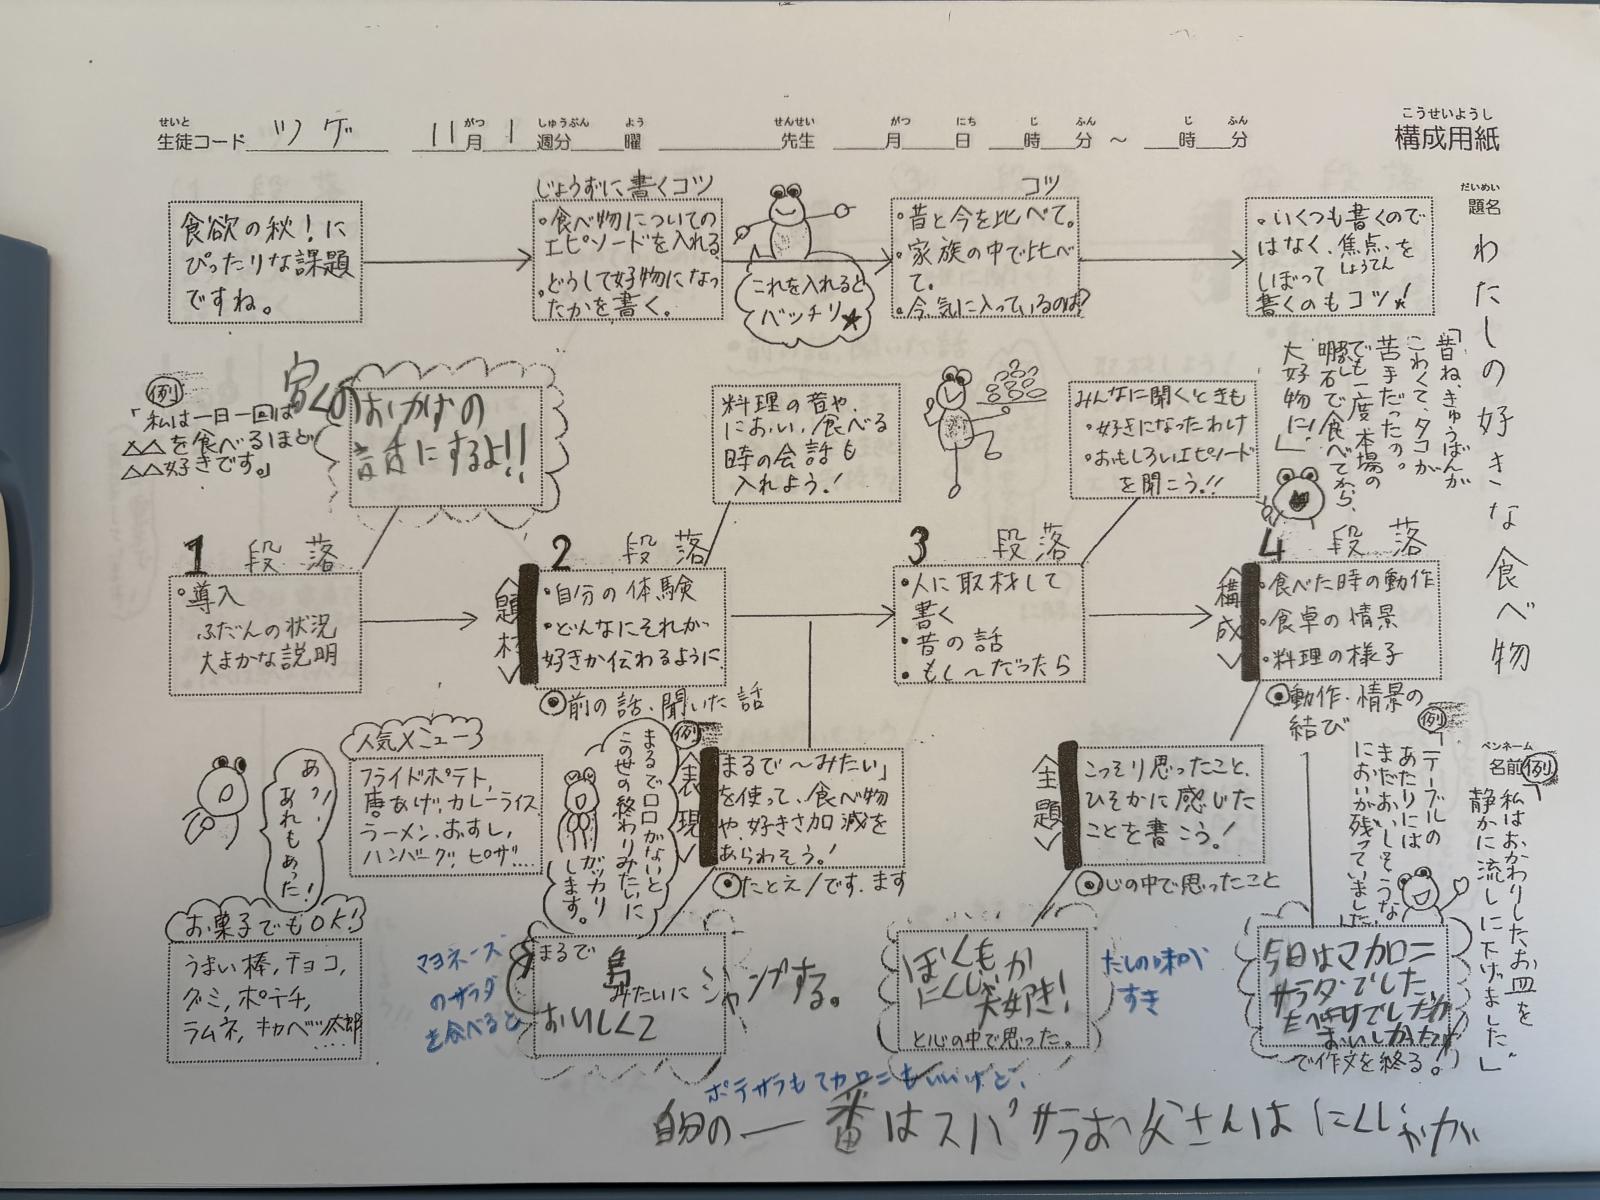 せいと
生徒コード ツゲ
11月1週分 曜
がつ しゅうぶん よう
せんせい
先生
がつ にち じ ふん じ ふん
月 日 時 分 ～ 時 分
こうせいようし
構成用紙
だいめい
題名
わたしの好きな食べ物
食欲の秋！に
ぴったりな課題
ですね。
じょうずに書くコツ
・食べ物についての
エピソードを入れる
・どうして好物になっ
たかを書く。
これを入れると
バッチリ★
コツ
・昔と今を比べて。
・家族の中で比べ
て。
・今、気に入っているのは?
・いくつも書くので
はなく、焦点を
しょうてん
しぼって
書くのもコツ!
例
「私は一日一回は
△△を食べるほど
△△好きです。」
家くの
おかずの
話にするよ!!
料理の音や、
におい、食べる
時の会話も
入れよう!
みんなに聞くときも
・好きになったわけ
・おもしろいエピソード
を聞こう!!
「昔ね、きゅうばんが
こわくて、タコが
苦手だったの。
でも一度、本場の
明石で食べてから、
大好物に!」
1 段落
・導入
ふだんの状況
大まかな説明
2 段落
＜題材＞
・自分の体験
・どんなにそれが
好きか伝わるように
◎前の話、聞いた話
3 段落
・人に取材して
書く
・昔の話
・もし〜だったら
4 段落
＜構成＞
・食べた時の動作
・食卓の情景
・料理の様子
◎動作、情景の
結び
あっ!
あれもあった!
人気メニュー
フライドポテト、
唐あげ、カレーライス、
ラーメン、おすし、
ハンバーグ、ピザ…
まるで口口がないと
この世の終わりみたいに
ガッカリ
します。
例
＜表現＞
まるで〜みたい」
を使って、食べ物
や、好きさ加減を
あらわそう!
◎たとえ/です、ます
＜主題＞
こっそり思ったこと、
ひそかに感じた
ことを書こう!
◎心の中で思ったこと
例
「テーブルの
あたりには
まだおいしそうな
においが残っていました」
ペンネーム
名前
例
「私はおかわりしたお皿を
静かに流しに下げました」
お菓子でもOK!
うまい棒、チョコ、
グミ、ポテチ、
ラムネ、キャベツ太郎
マヨネーズ
のサラダ
を食べると
まるで
鳥
みたいに ジャンプする。
おいしくて
ぼくも
にくじゃが
大好き!
と心の中で思った。
だしの味が
すき
今日はマカロニ
サラダでした
おいしかった
で作文を終る。
ポテサラもマカロニもいいけど、
自分の一番はスパサラお父さんはにくじゃが